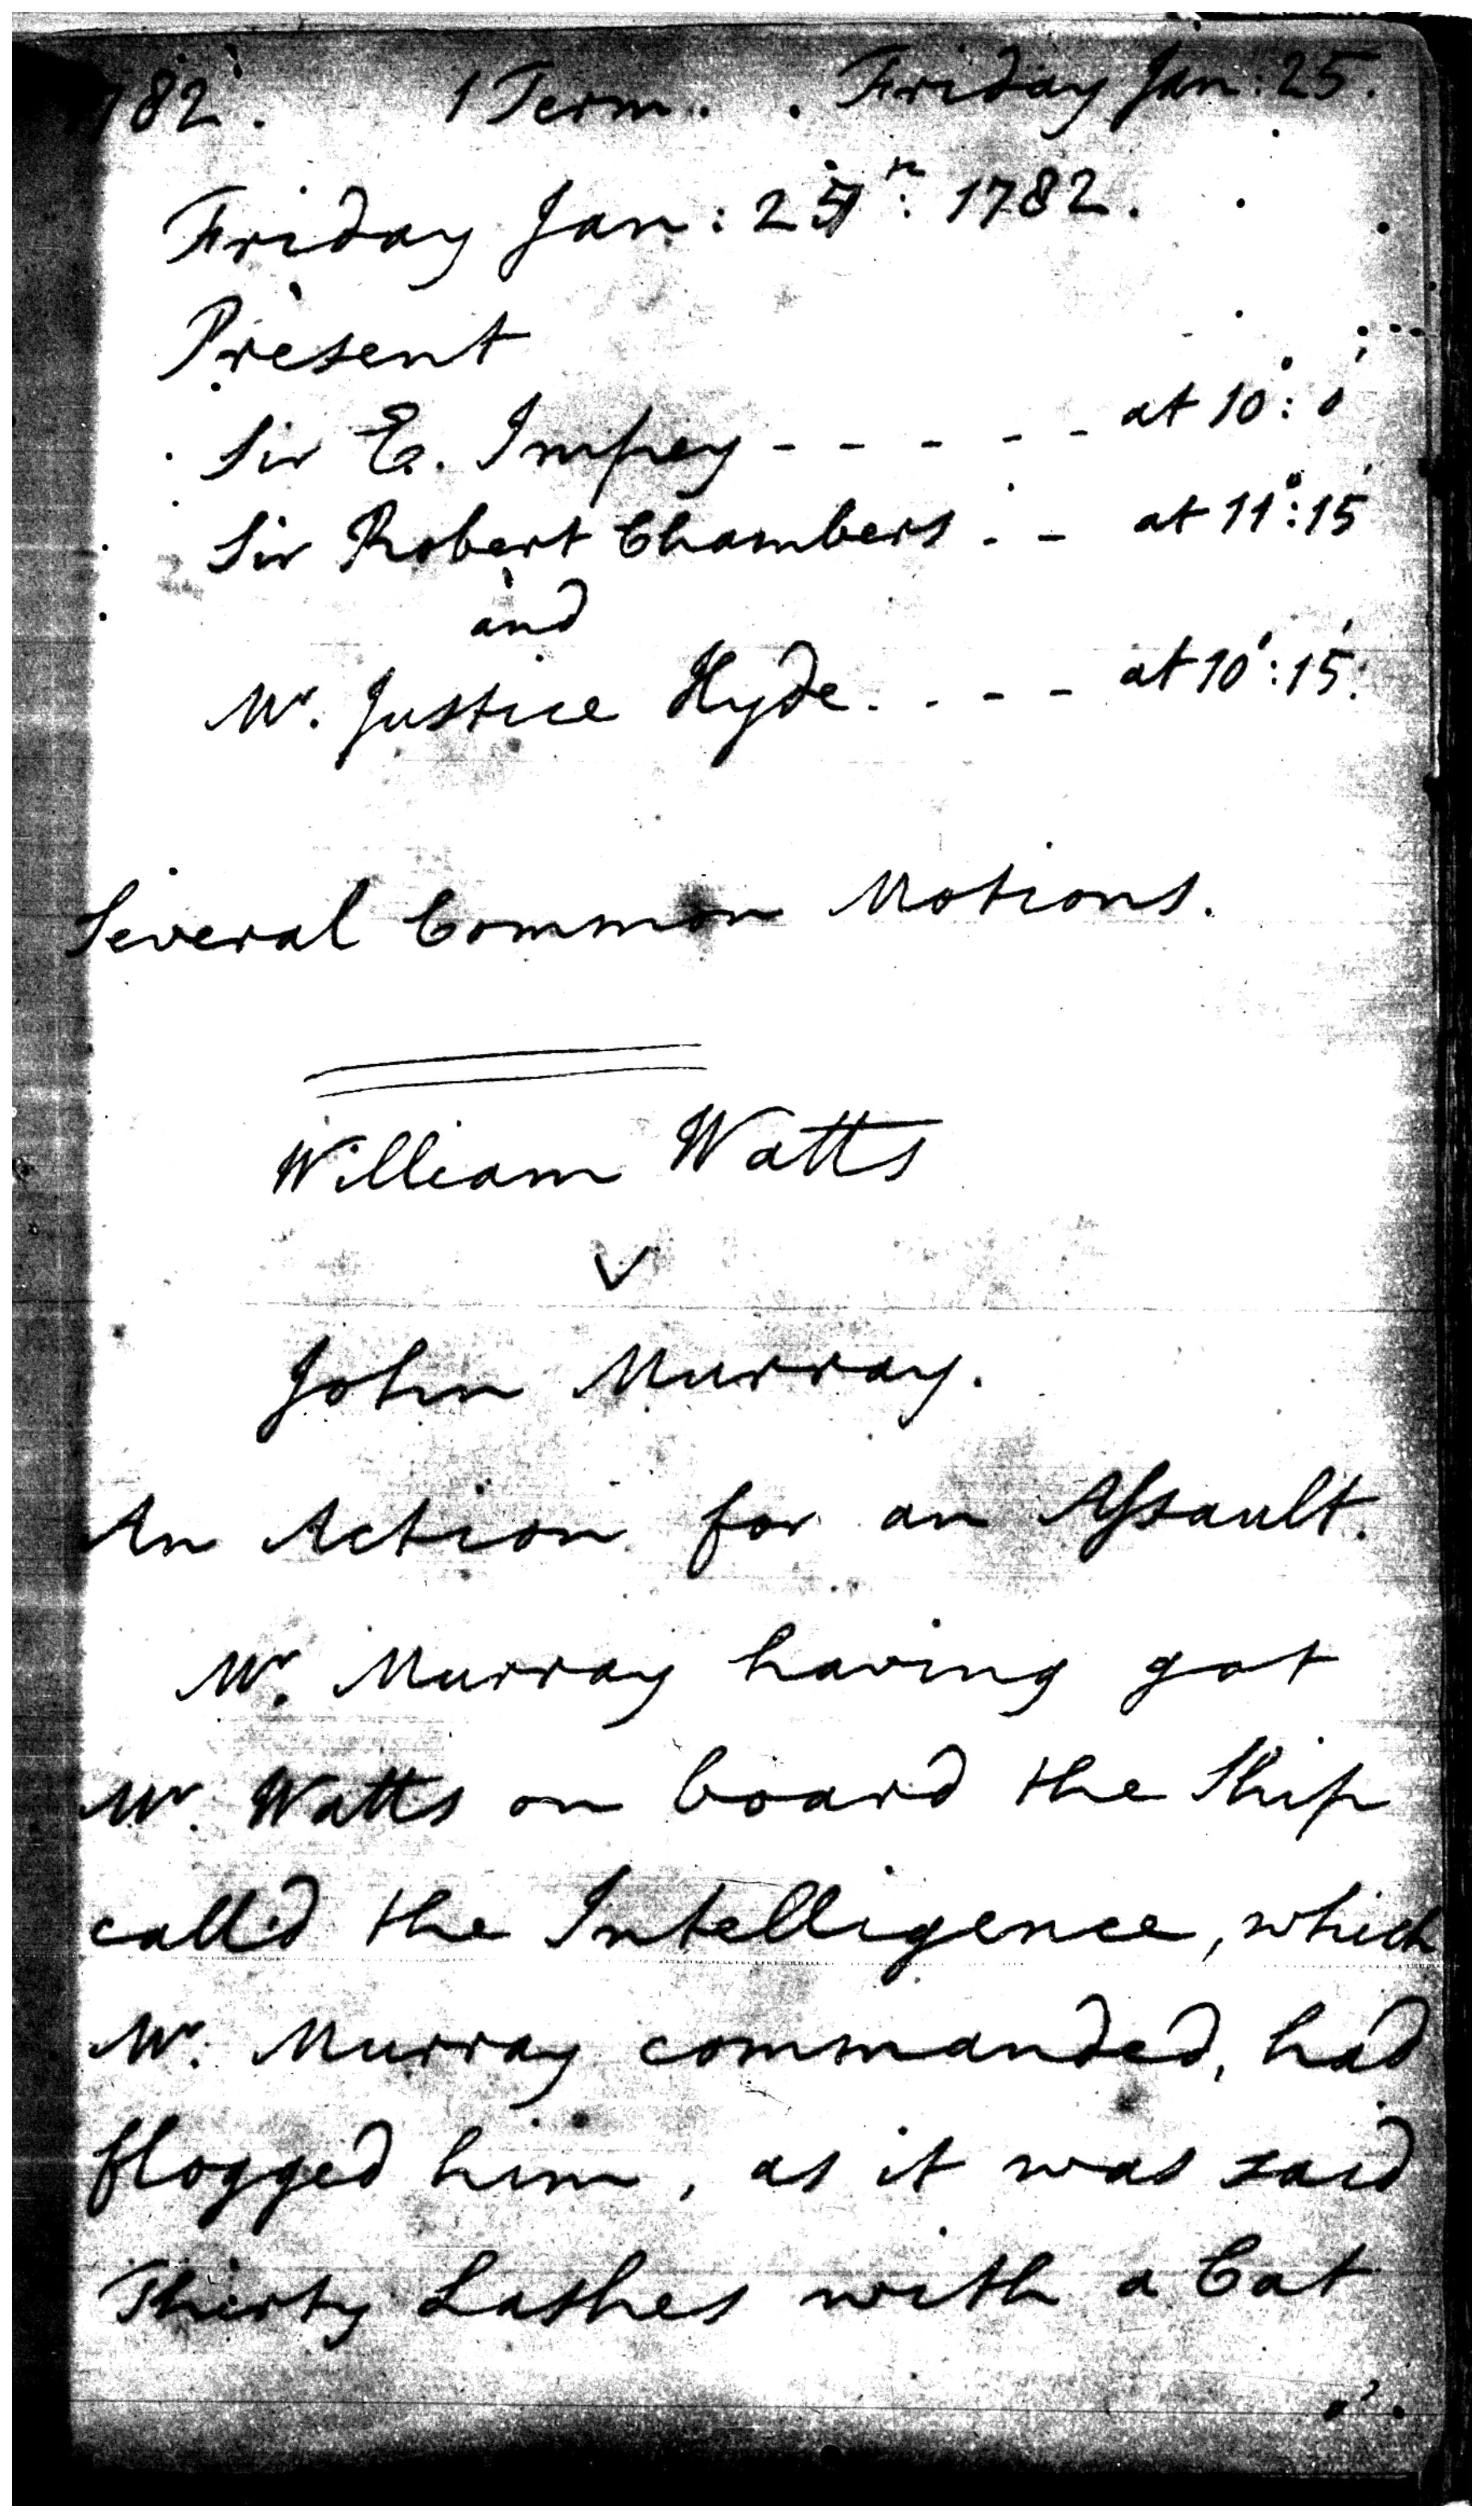 1782. 1 Term. Friday Jan: 25.
Friday Jan: 25th: 1782.
Present
Sir E. Impey - - - - - at 10°: 0'
Sir Robert Chambers - - at 11°:15'
and
Mr. Justice Hyde. - - - at 10°:15'.
Several Common Motions.
William Watts
v
John Murray.
An Action for an Assault.
Mr. Murray having got
Mr. Watts on board the Ship
call'd the Intelligence, which
Mr. Murray commanded, had
flogged him, as it was said
Thirty Lashes with a Cat
o'